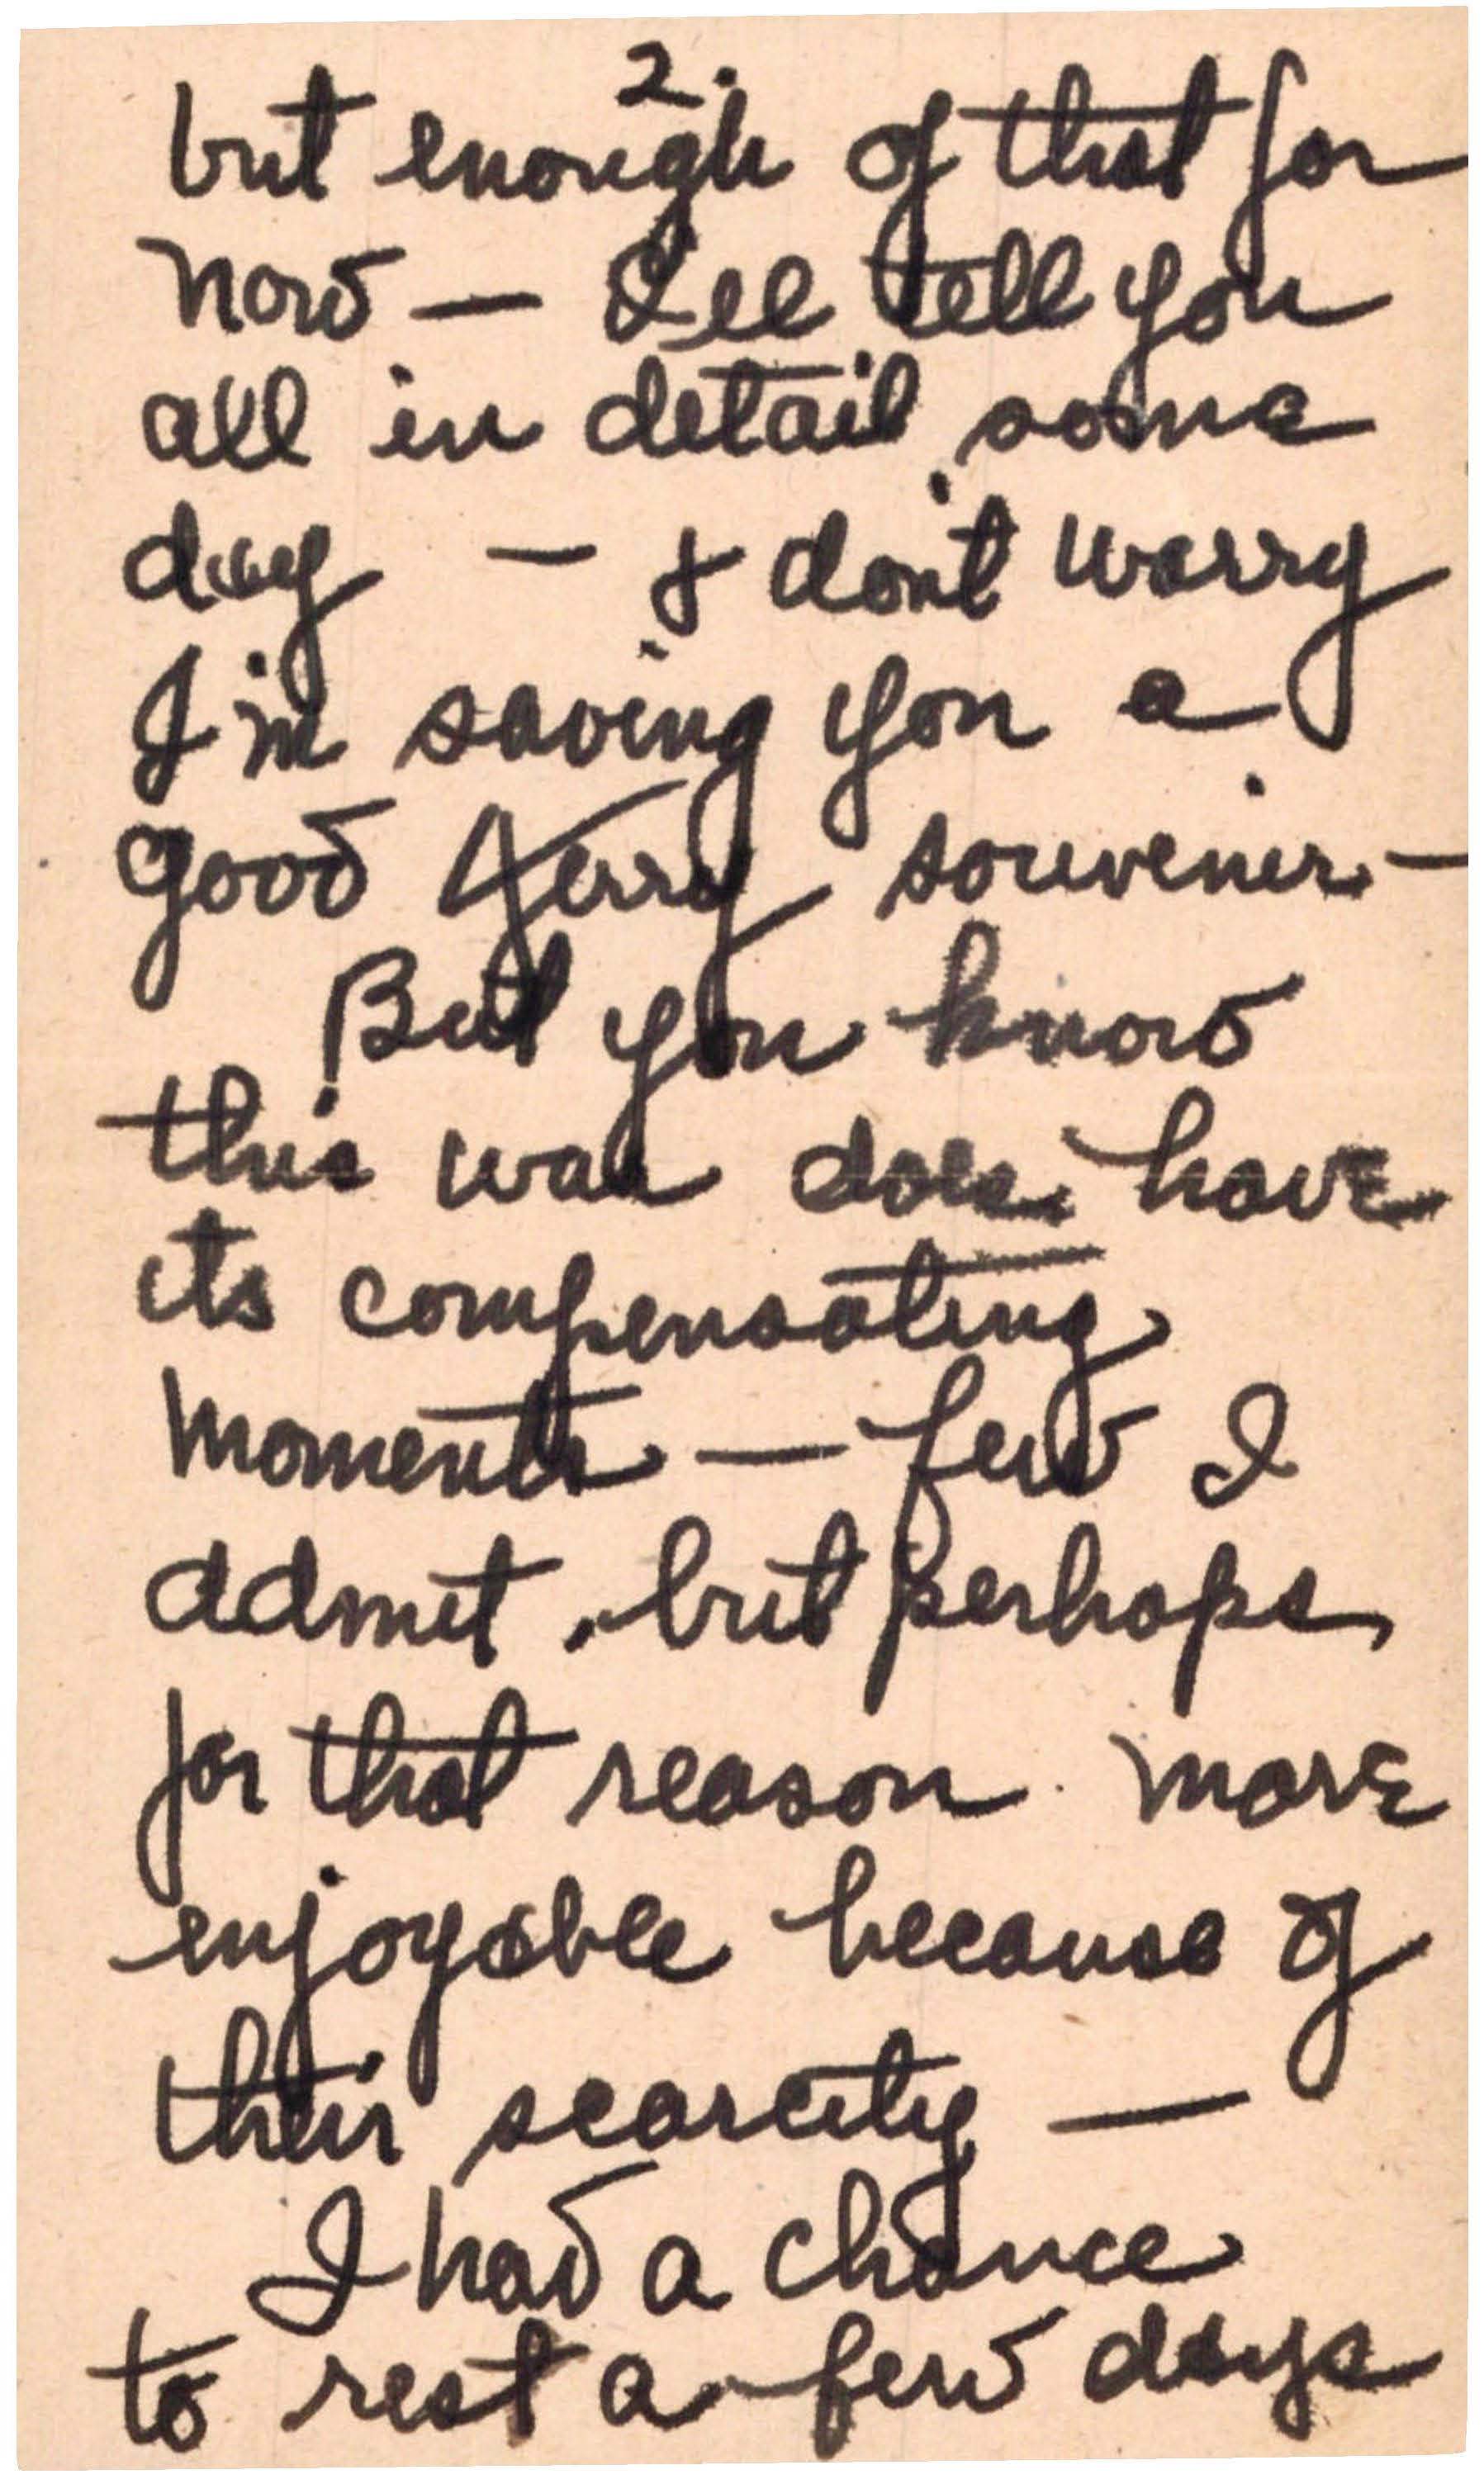 2.
but enough of that for
now — I'll tell you
all in detail some
day — & don't worry
I'm saving you a
good Jerry souvenir —
But you know
this war does have
its compensating
moments — few I
admit, but perhaps,
for that reason more
enjoyable because of
their scarcity —
I had a chance
to rest a few days